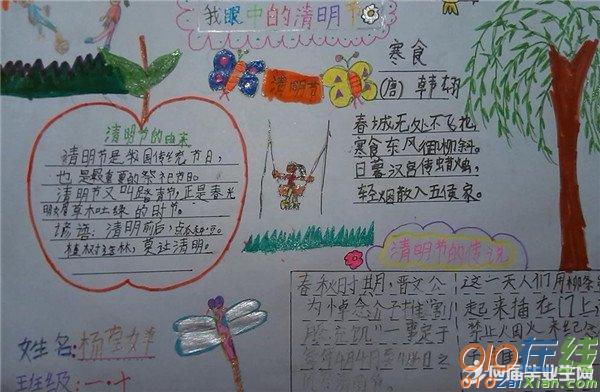 我眼中的清明节
清明节
寒食
(唐) 韩翃
春城无处不飞花
寒食东风御柳斜。
日暮汉宫传蜡烛,
轻烟散入五侯家。
清明节的由来
清明节是我国传统节日,
也是最重要的祭祀节日。
清明节又叫踏青节,正是春光
明媚草木吐绿的时节。
谚语:清明前后,点瓜种豆。
植树造林,莫过清明。
清明节的传说
春秋时期,晋文公
为悼念介子推“割
股充饥”一事定于
每年4月4日至
这一天人们用柳条
起来插在门上
禁止烟火来纪念
姓名:
班级:一·十
910在线
910zaixian.com
应届毕业生网